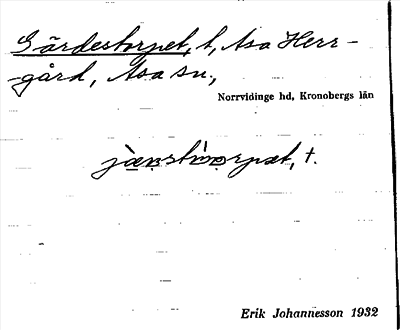 Gärdestorpet, t, Asa Herr-
-gård, Asa sn.,
Norrvidinge hd, Kronobergs län
Erik Johannesson 1932